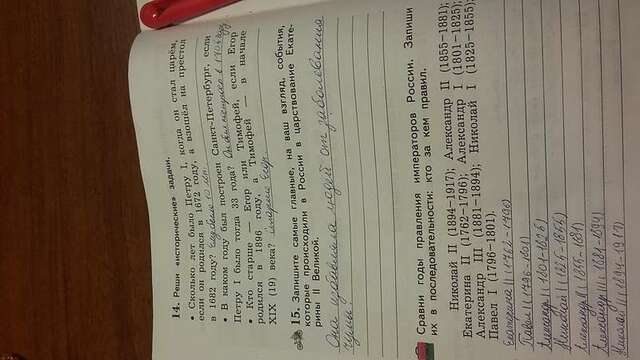 14. Реши «исторические» задачи.
• Сколько лет было Петру I, когда он стал царём,
если он родился в 1672 году, а взошёл на престол
в 1682 году? Ему было 10 лет.
• В каком году был построен Санкт-Петербург, если
Петру I было тогда 33 года? Он был построен в
• Кто старше — Егор или Тимофей, если Егор
родился в 1896 году, а Тимофей — в начале
XIX (19) века? Егор.
15. Запишите самые главные, на ваш взгляд, события,
которые происходили в России в царствование Екате-
рины II Великой.
Она избавляла людей от заболевания
чумы.
Сравни годы правления императоров России. Запиши
их в последовательности: кто за кем правил.
Николай II (1894–1917); Александр II (1855–1881);
Екатерина II (1762–1796); Александр I (1801–1825);
Александр III (1881–1894); Николай I (1825–1855);
Павел I (1796–1801).
Екатерина II (1762-1796)
Павел I (1796-1801)
Александр I (1801-1825)
Николай I (1825-1855)
Александр II (1855-1881)
Александр III (1881-1894)
Николай II (1894-1917)